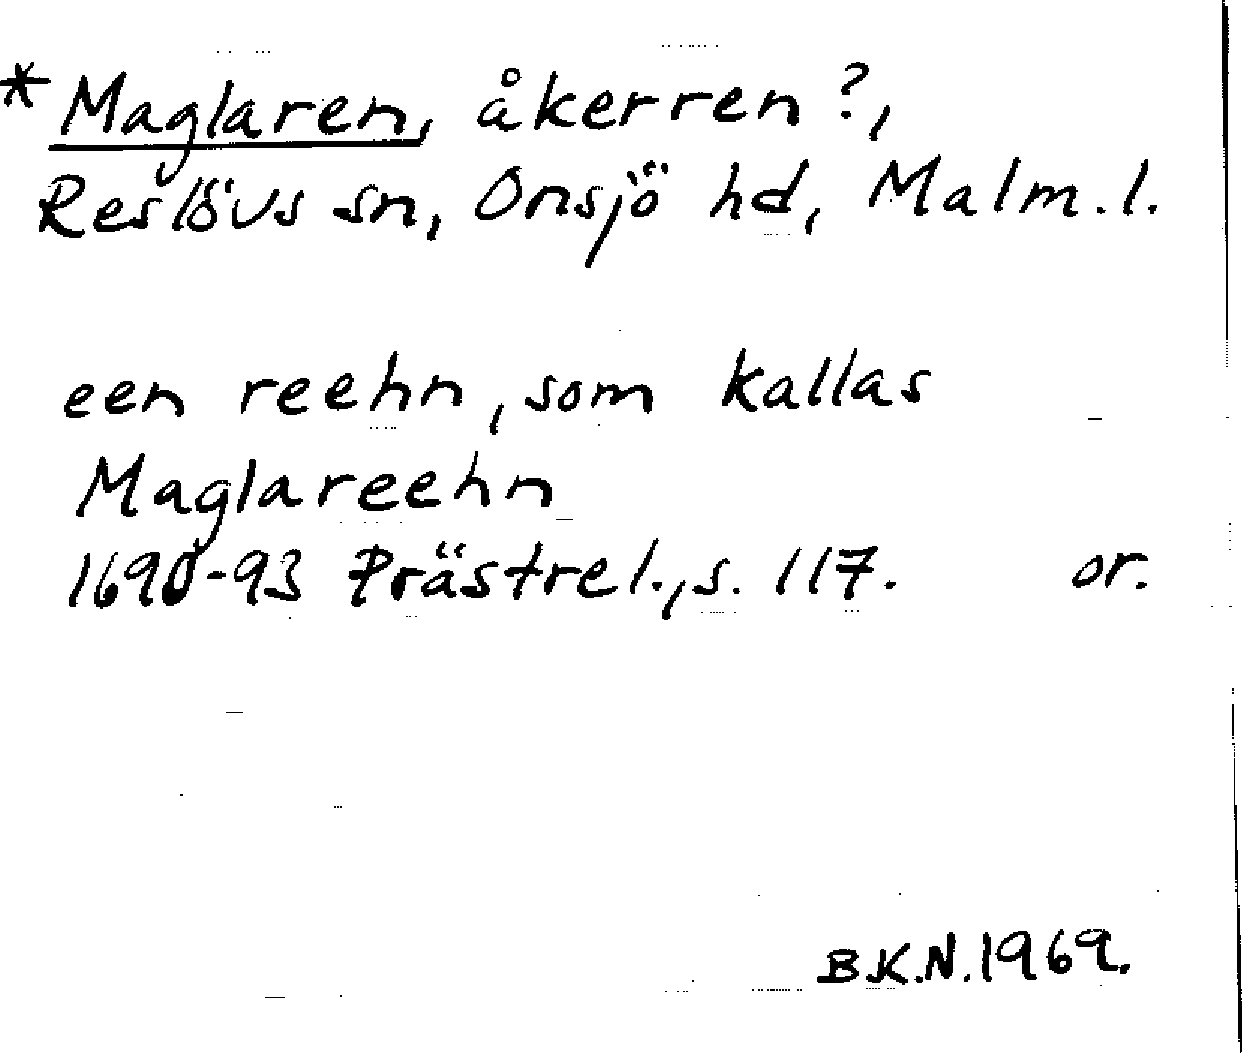 *Maglaren, åkerren?,
Reslövs sn, Onsjö hd, Malm.l.
een reehn, som kallas
Maglareehn
1690-93 Prästrel., s. 117. or.
B.K.N. 1969.